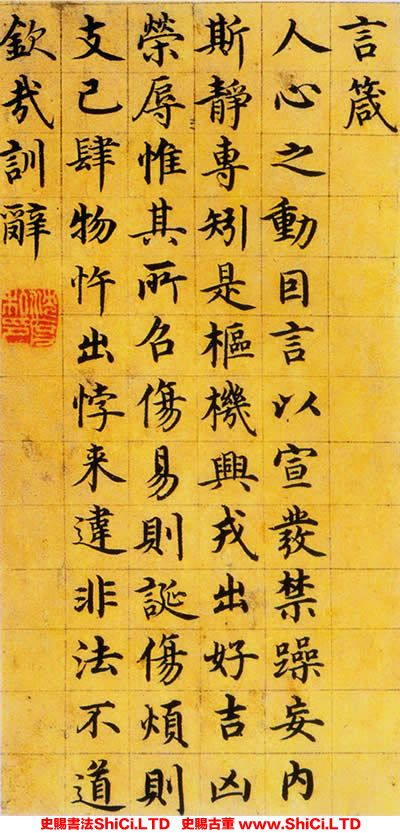 言箴
人心之動因言以宣發禁躁妄內
斯靜專矧是樞機興戎出好吉凶
榮辱惟其所召傷易則誕傷煩則
支己肆物忤出悖来違非法不道
欽哉訓辭
史賜書法ShiCi.LTD 史賜古董 www.ShiCi.LTD